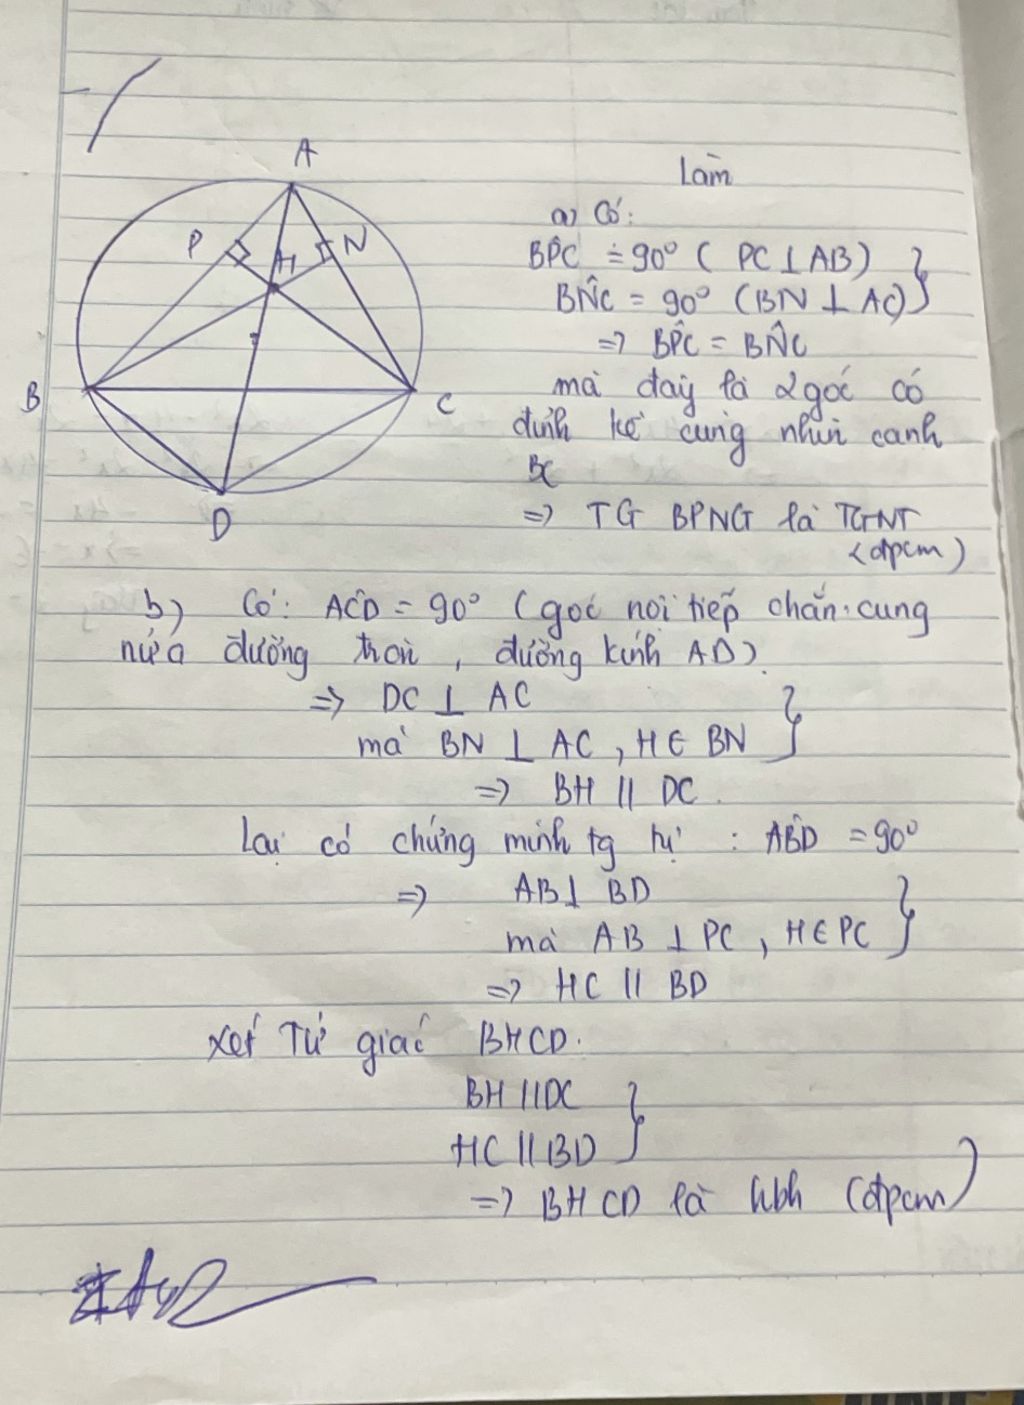 A
P
N
H
B
C
D
Làm
a) Có:
BP̂C = 90° ( PC ⊥ AB)
BN̂C = 90° (BN ⊥ AC)
=> BP̂C = BN̂C
mà đaỳ là 2 góc có
đỉnh kề cùng nhìn cạnh
BC
=> TG BPNG là TGNT
(đpcm)
b) Có: AĈD = 90° (góc nội tiếp chắn cung
nửa đường tròn, đường kính AD).
=> DC ⊥ AC
mà BN ⊥ AC, H ∈ BN
=> BH || DC.
Lại có chứng minh tg tự : AB̂D = 90°
=> AB ⊥ BD
mà AB ⊥ PC, H ∈ PC
=> HC || BD
Xét Tứ giác BHCD.
BH || DC
HC || BD
=> BHCD là hbh (đpcm)